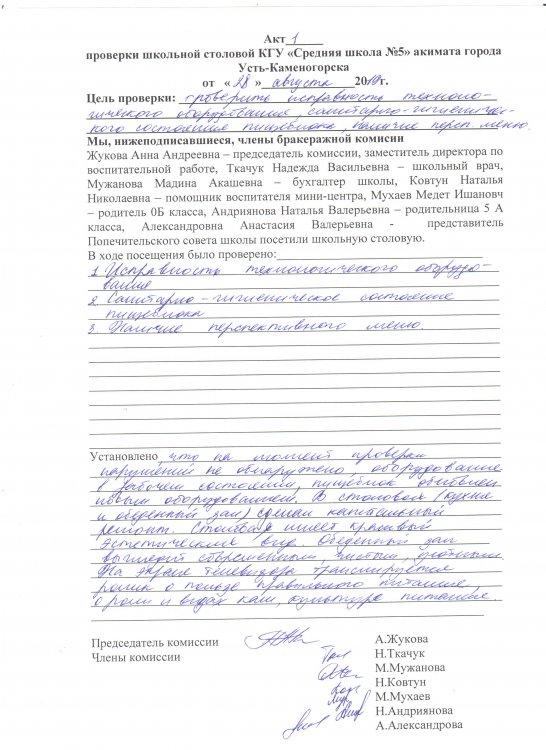 Акт 1
проверки школьной столовой КГУ «Средняя школа №5» акимата города
Усть-Каменогорска
от «28» августа 2019г.
Цель проверки: проверить исправность техноло-
гического оборудования, санитарно-гигиеничес-
кого состояния пищеблока, наличие персп. меню.
Мы, нижеподписавшиеся, члены бракеражной комисии
Жукова Анна Андреевна – председатель комиссии, заместитель директора по
воспитательной работе, Ткачук Надежда Васильевна – школьный врач,
Мужанова Мадина Акашевна – бухгалтер школы, Ковтун Наталья
Николаевна – помощник воспитателя мини-центра, Мухаев Медет Ишанович
– родитель 0Б класса, Андриянова Наталья Валерьевна – родительница 5 А
класса, Александровна Анастасия Валерьевна - представитель
Попечительского совета школы посетили школьную столовую.
В ходе посещения было проверено:
1. Исправность технологического оборудо-
вания
2. Санитарно-гигиеническое состояние
пищеблока
3. Наличие перспективного меню.
Установлено, что на момент проверки
нарушений не обнаружено, оборудование
в рабочем состоянии, пищеблок обновлен
новым оборудованием. В столовой (кухне
и обеденный зал) сделан капитальный
ремонт. Столовая имеет красивый
эстетический вид. Обеденный зал
выглядит современным, чистым, уютным.
На экране телевизора транслируется
ролик о пользе правильного питания,
о роли и видах каш, культуре питания.
Председатель комиссии А.Жукова
Члены комиссии Н.Ткачук
М.Мужанова
Н.Ковтун
М.Мухаев
Н.Андриянова
А.Александрова